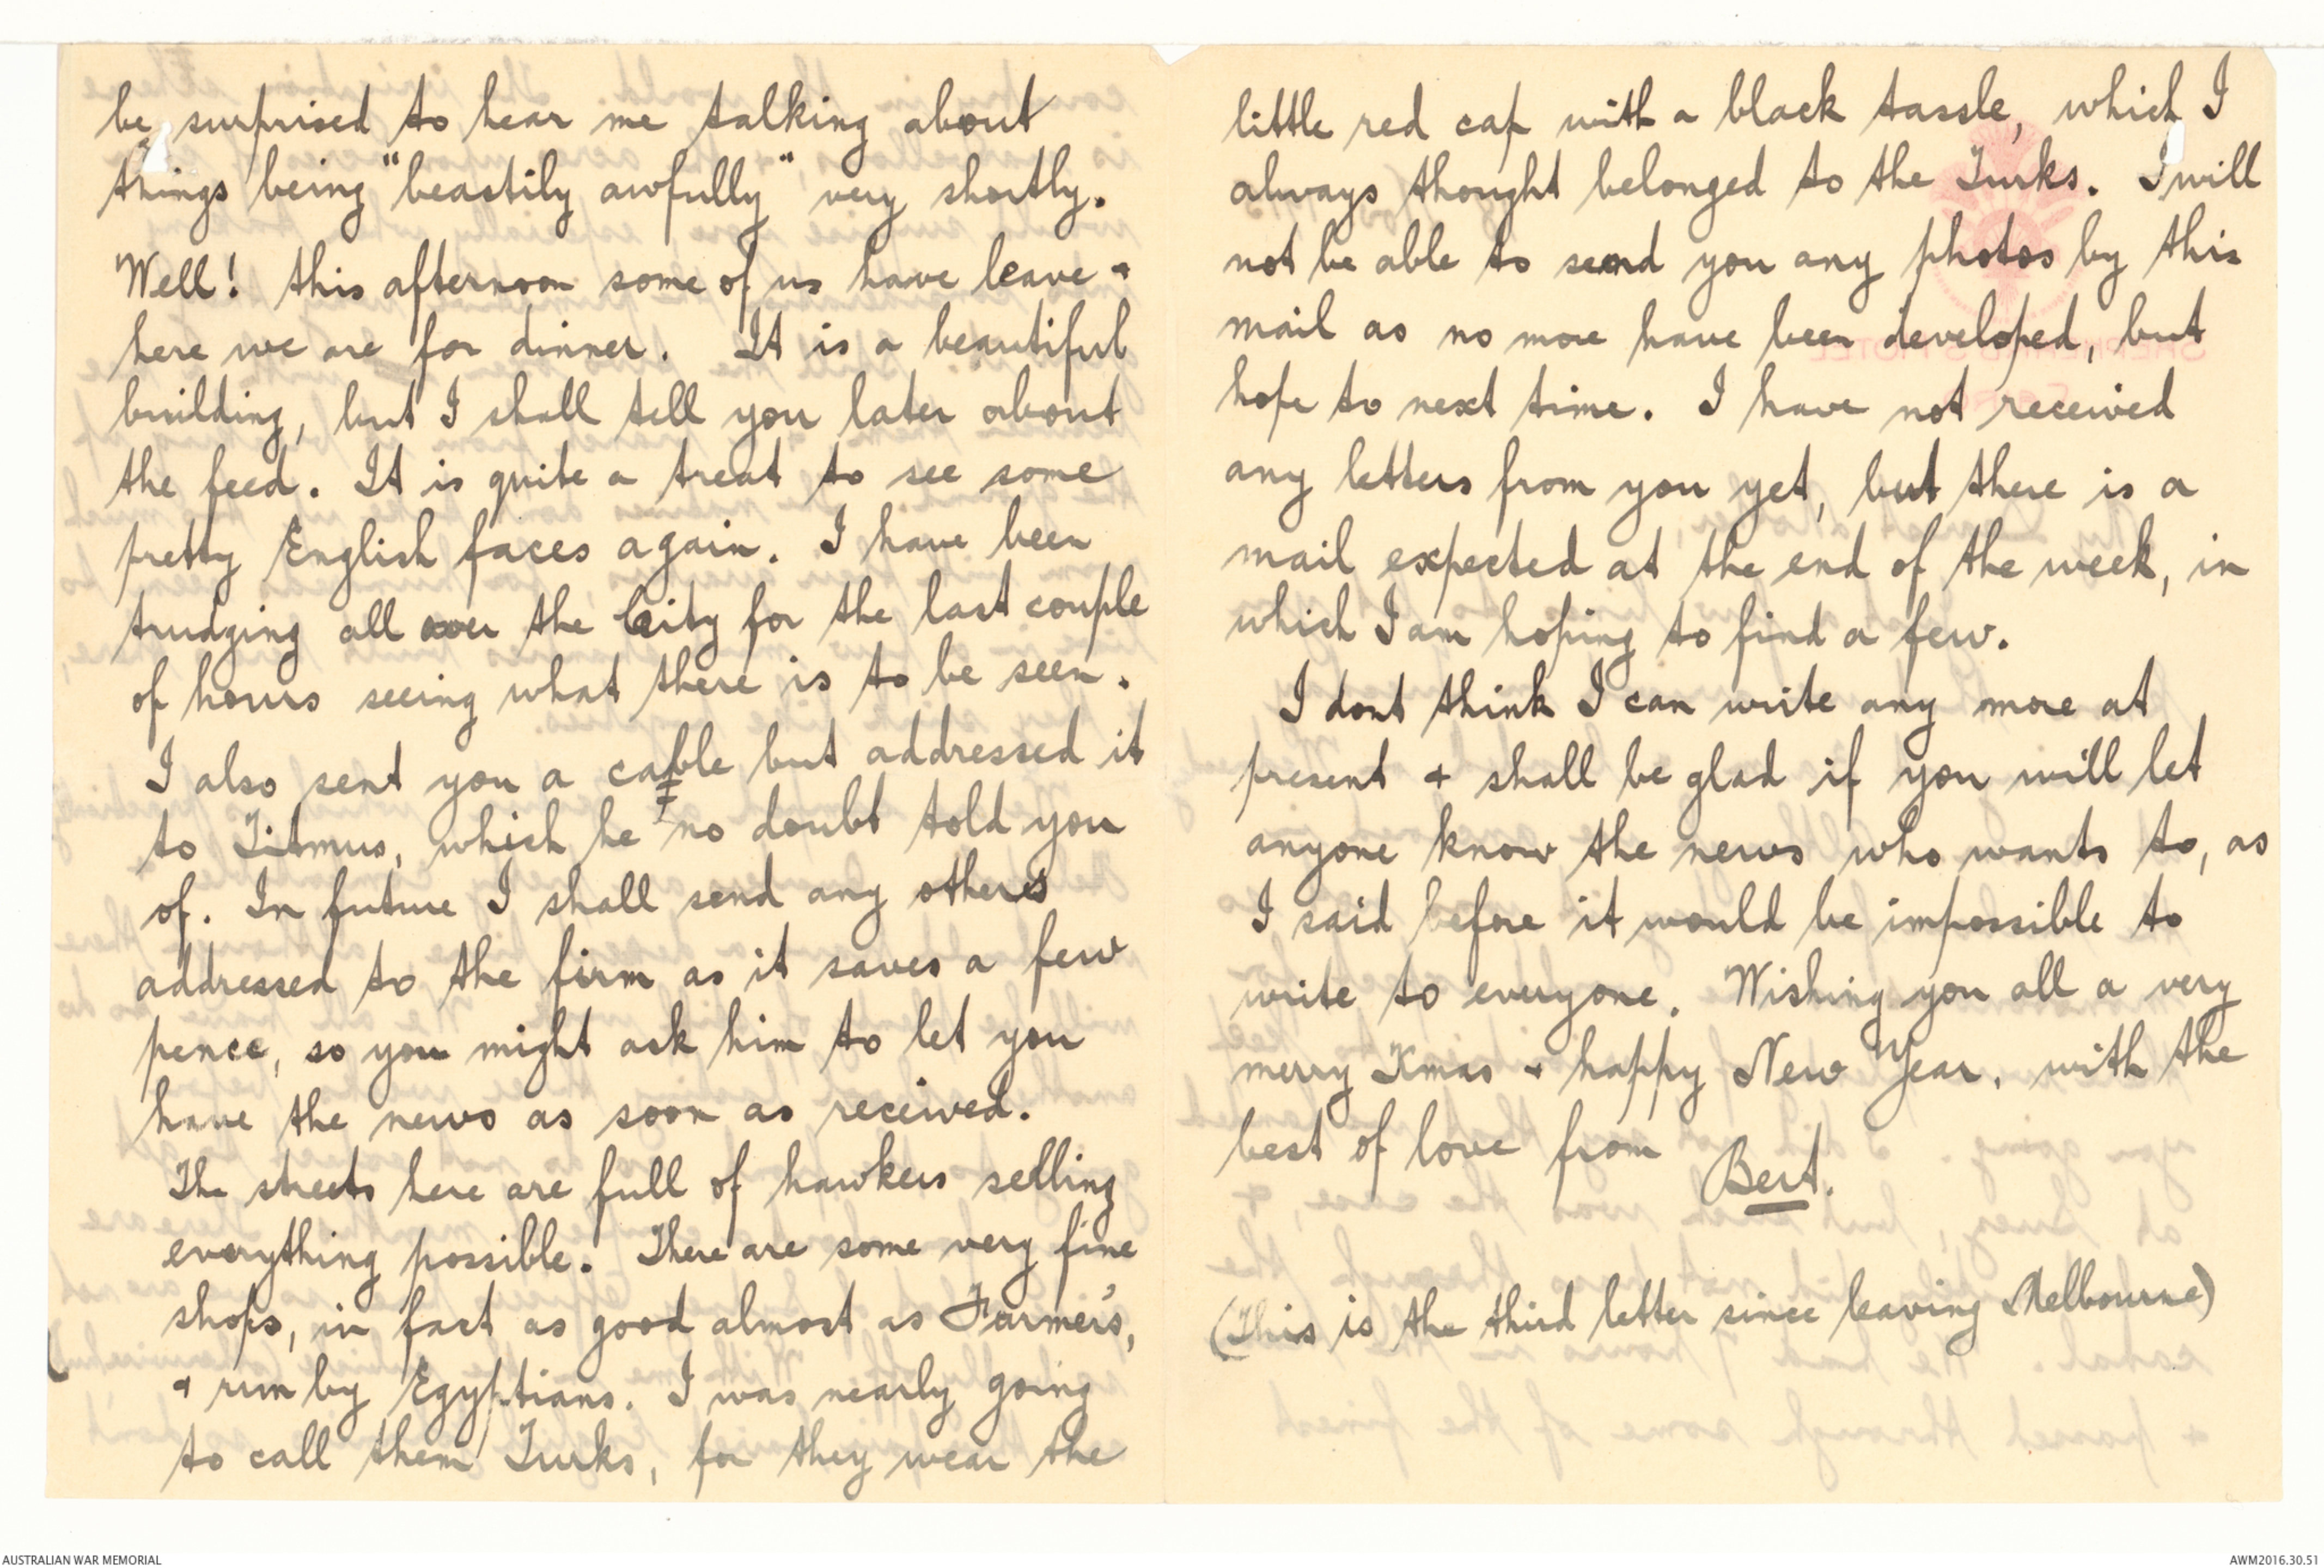 be surprised to hear me talking about
things being "beastily awfully" very shortly.
Well! this afternoon some of us have leave &
here we are for dinner. It is a beautiful
building, but I shall tell you later about
the feed. It is quite a treat to see some
pretty English faces again. I have been
trudging all over the City for the last couple
of hours seeing what there is to be seen.
I also sent you a cable but addressed it
to Titmus, which he no doubt told you
of. In future I shall send any others
addressed to the firm as it saves a few
pence, so you might ask him to let you
have the news as soon as received.
The streets here are full of hawkers selling
everything possible. There are some very fine
shops, in fact as good almost as Farmer's,
& run by Egyptians. I was nearly going
to call them Turks, for they wear the
little red cap with a black tassle, which I
always thought belonged to the Turks. I will
not be able to send you any photos by this
mail as no more have been developed, but
hope to next time. I have not received
any letters from you yet, but there is a
mail expected at the end of the week, in
which I am hoping to find a few.
I dont think I can write any more at
present & shall be glad if you will let
anyone know the news who wants to, as
I said before it would be impossible to
write to everyone. Wishing you all a very
merry Xmas & happy New Year, with the
best of love from
Bert.
(This is the third letter since leaving Melbourne)
AUSTRALIAN WAR MEMORIAL
AWM2016.30.51